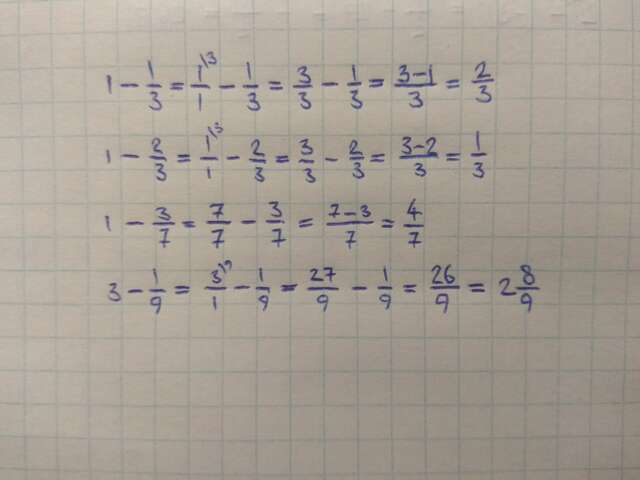 1 - 1/3 = 1\3/1 - 1/3 = 3/3 - 1/3 = 3-1/3 = 2/3
1 - 2/3 = 1\3/1 - 2/3 = 3/3 - 2/3 = 3-2/3 = 1/3
1 - 3/7 = 7/7 - 3/7 = 7-3/7 = 4/7
3 - 1/9 = 3\9/1 - 1/9 = 27/9 - 1/9 = 26/9 = 2 8/9